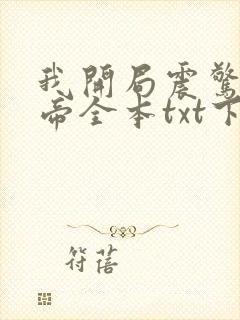 我開局震驚
帝全本txt下
符蓓